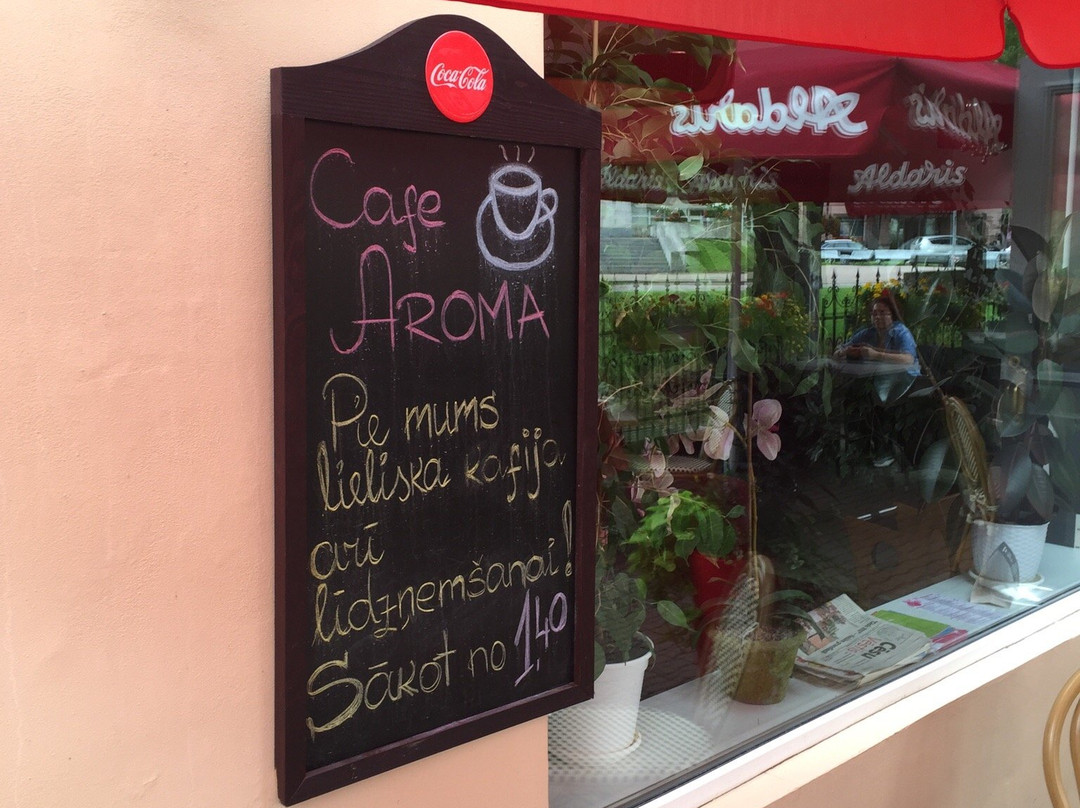 Coca-Cola
Cafe
AROMA
Pie mums
lieliska kafija
arī
līdzņemšanai!
Sākot no 1,40
Aldaris
Aldaris
Aldaris
Cēsu